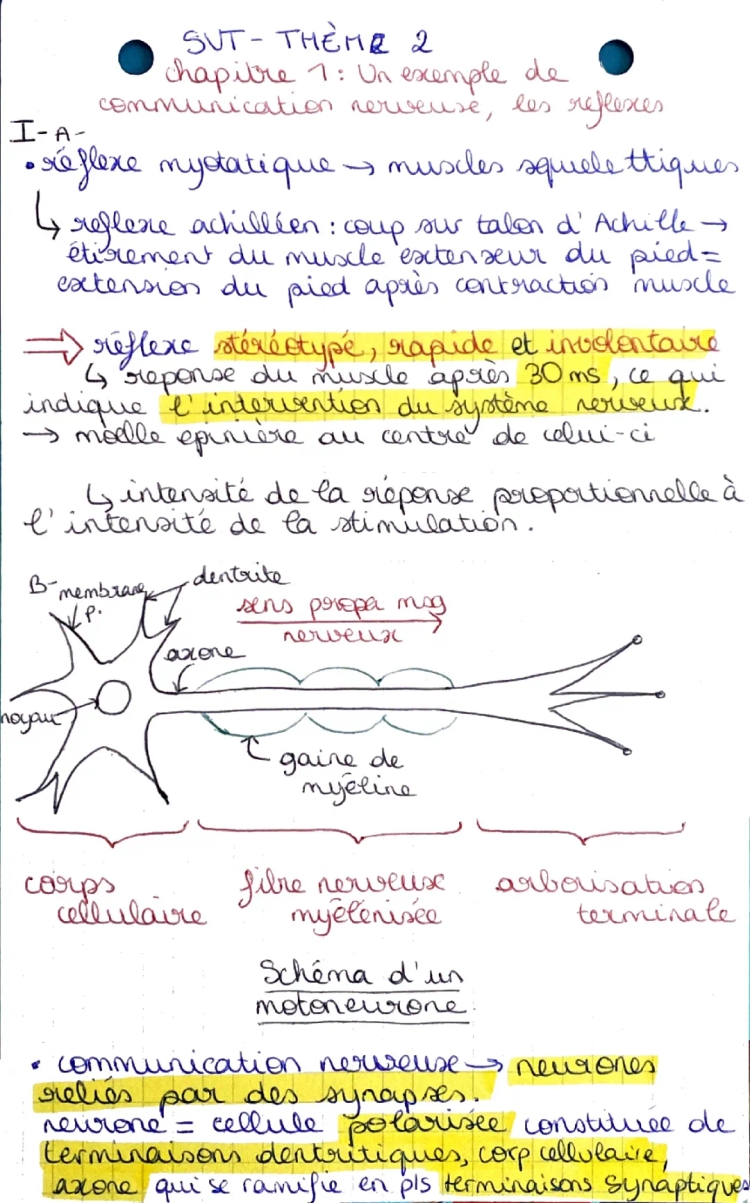 SVT - THÈME 2
chapitre 1 : Un exemple de
communication nerveuse, les reflexes
I - A -
• réflexe myotatique → muscles squelettiques
↳ reflexe achilléen : coup sur talon d'Achille →
étirement du muscle extenseur du pied =
extension du pied après contraction muscle
⇒ réflexe stéréotypé, rapide et involontaire
↳ reponse du muscle après 30 ms, ce qui
indique l'intervention du système nerveux.
→ moelle epinière au centre de celui-ci
↳ intensité de la réponse proportionnelle à
l'intensité de la stimulation.
B- membrane p.
dentrite
sens propa msg
nerveux
axone
noyau
gaine de
myéline
corps
cellulaire
fibre nerveuse
myélénisée
arborisation
terminale
Schéma d'un
motoneurone.
• communication nerveuse → neurones
reliés par des synapses.
neurone = cellule polarisée constituée de
terminaisons dentritiques, corp cellulaire,
axone qui se ramifie en pls terminaisons synaptiques